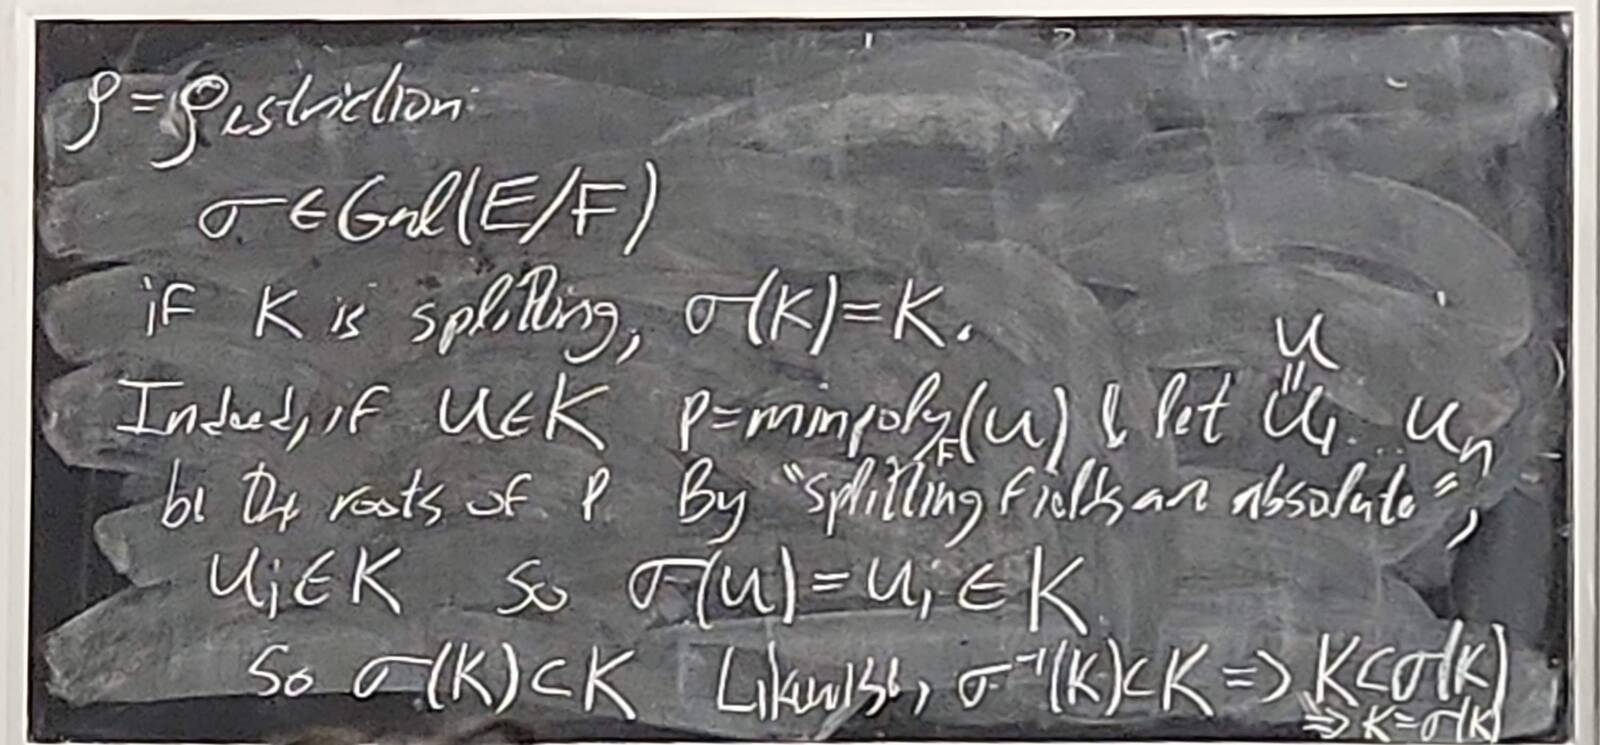 ρ = ρestriction
σ ∈ Gal(E/F)
if K is splitting, σ(K) = K.
Indeed, if u ∈ K p = minpoly_F(u) & let u = u₁ ... uₙ
be the roots of p By "splitting fields are absolute",
uᵢ ∈ K so σ(u) = uᵢ ∈ K
So σ(K) ⊂ K Likewise, σ⁻¹(K) ⊂ K ⇒ K ⊂ σ(K)
⇒ K = σ(K)